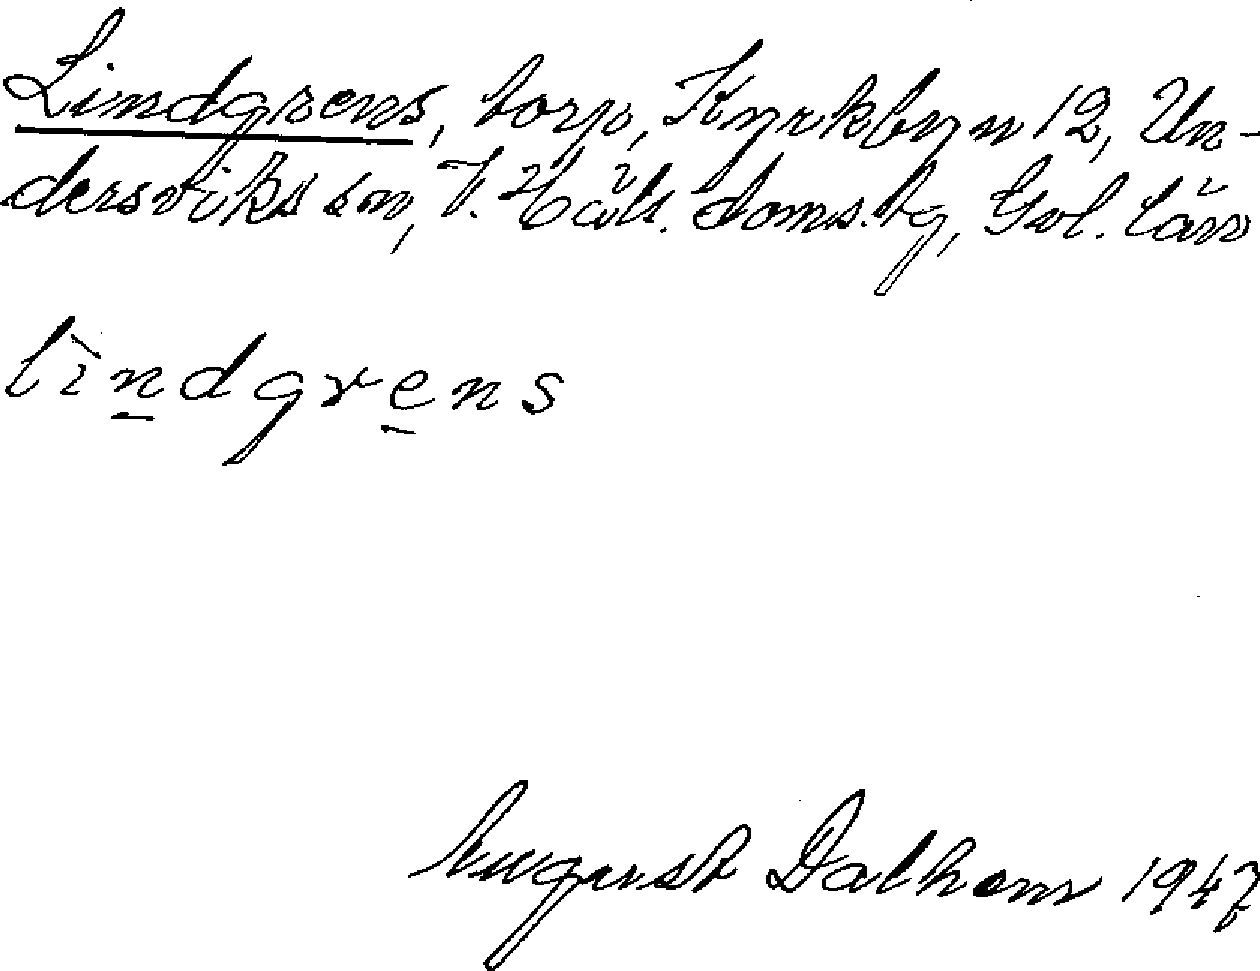 Lindgrens, torp, Kyrkbyn 12, Un-
dersviks sn, V. Häls. doms.bg, Gvl. län
lìndgrens
August Dalhem 1947